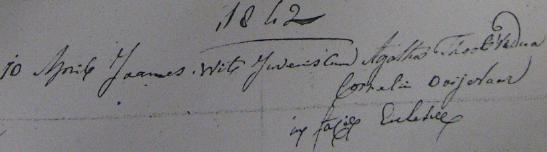 1842
10 April Joannes Wit Juvenis cum Agatha Thool Vidua
Cornelii
in facie Ecclesiæ